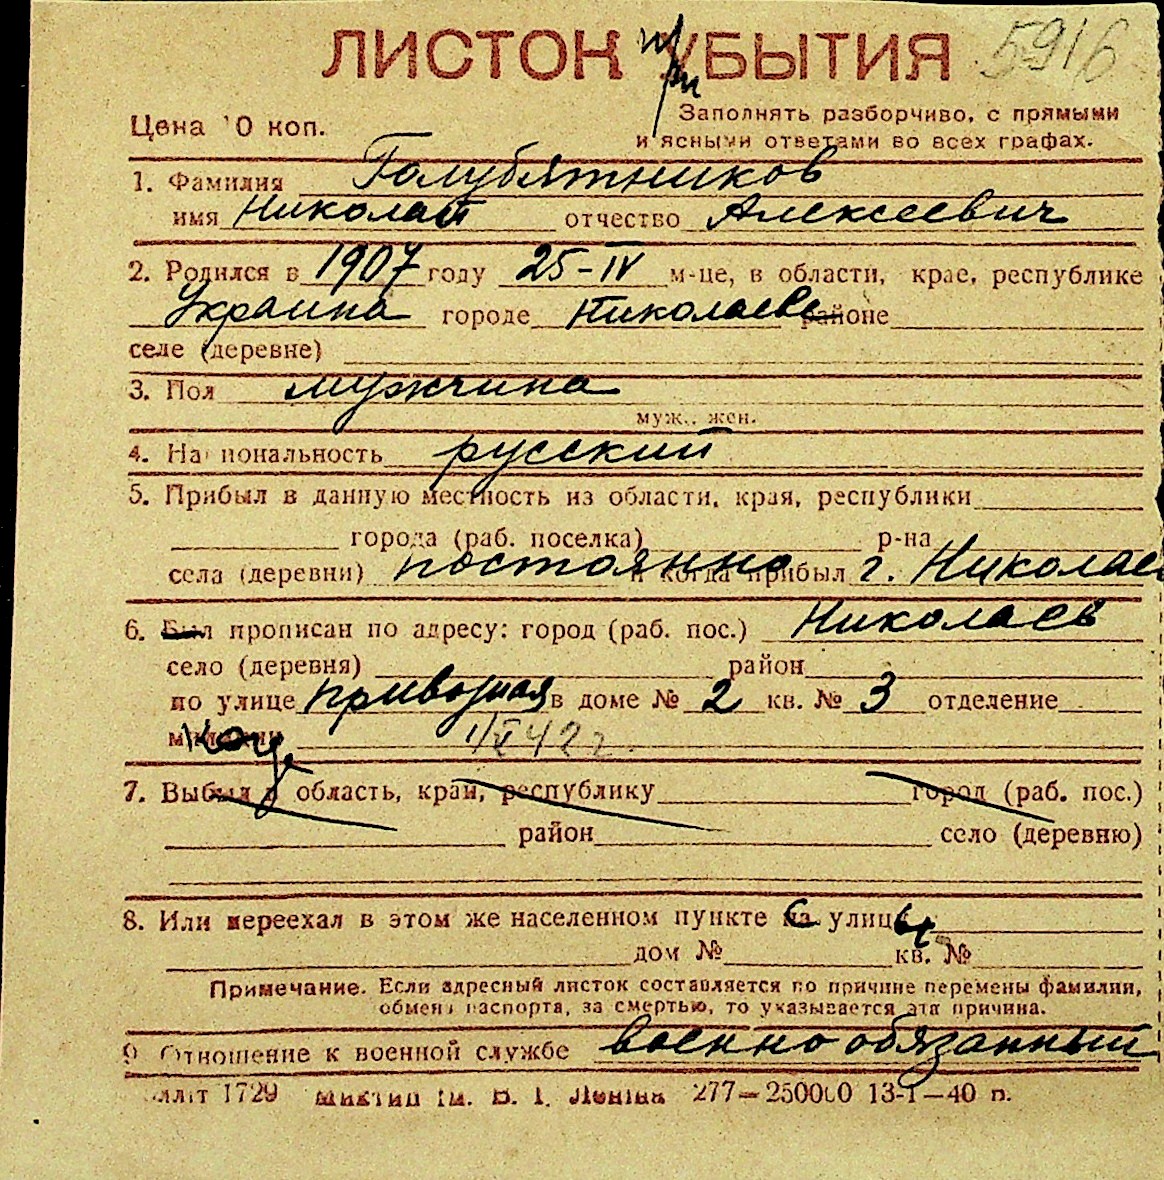 ЛИСТОК УБЫТИЯ
при
5916
Цена 10 коп.
Заполнять разборчиво, с прямыми
и ясными ответами во всех графах.
1. Фамилия Голубятников
имя Николай отчество Алексеевич
2. Родился в 1907 году 25-IV м-це, в области, крае, республике
Украина городе Николаеве районе
селе (деревне)
3. Пол мужчина
муж., жен.
4. Национальность русский
5. Прибыл в данную местность из области, края, республики
города (раб. поселка) р-на
села (деревни) постоянно и когда прибыл г. Николаев
6. Был прописан по адресу: город (раб. пос.) Николаев
село (деревня) район
по улице Привозная в доме № 2 кв. № 3 отделение
милиции 1/V 42 г.
7. Выбыл в область, край, республику город (раб. пос.)
район село (деревню)
8. Или переехал в этом же населенном пункте с улицы
дом № кв. №
Примечание. Если адресный листок составляется по причине перемены фамилии,
обмена паспорта, за смертью, то указывается эта причина.
9. Отношение к военной службе военнообязанный
1729 ім. В. І. Леніна 277—250000 13-І—40 р.